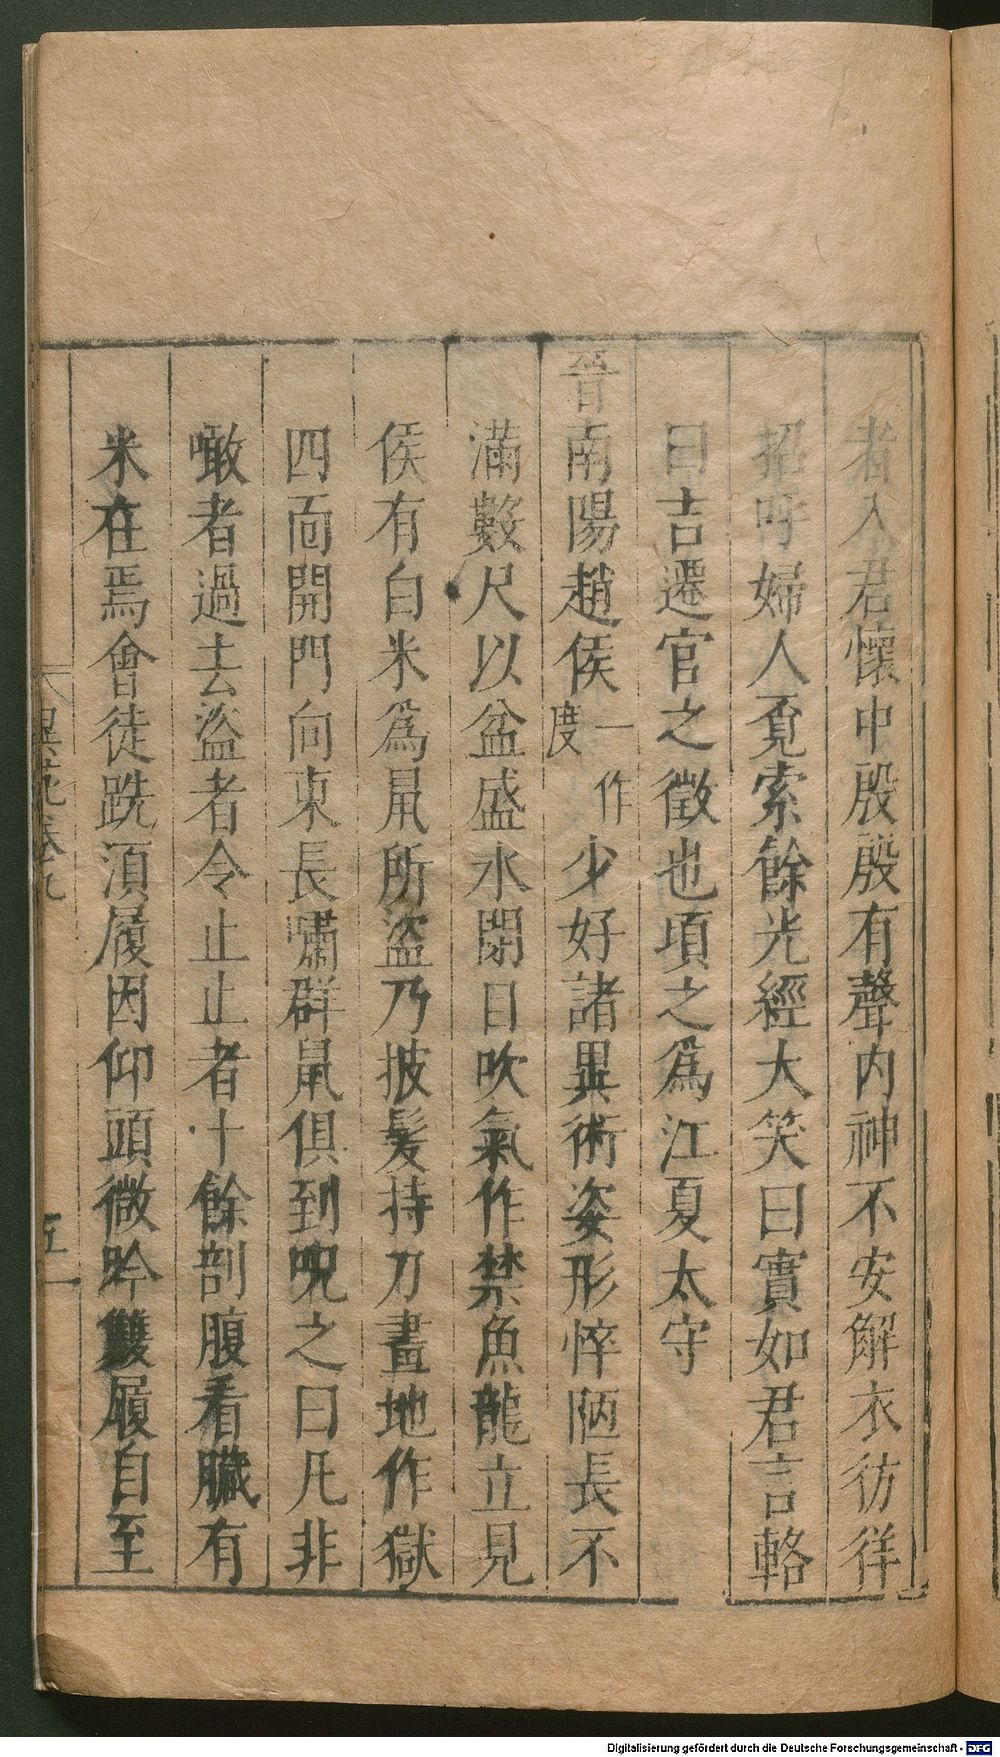 者入君懷中殷殷有聲内神不安解衣彷徉
招呼婦人覔索餘光經大笑曰實如君言輅
曰吉遷官之徵也頃之爲江夏太守
晉南陽趙侯一作度少好諸異術姿形悴陋長不
滿數尺以盆盛水閉目吹氣作禁魚龍立見
侯有白米爲鼠所盜乃披髮持刀畫地作獄
四面開門向東長嘯群鼠俱到呪之曰凡非
噉者過去盜者令止止者十餘剖腹看臟有
米在焉會徒跣湏履因仰頭微吟雙履自至
異苑卷九
五
Digitalisierung gefördert durch die Deutsche Forschungsgemeinschaft - DFG